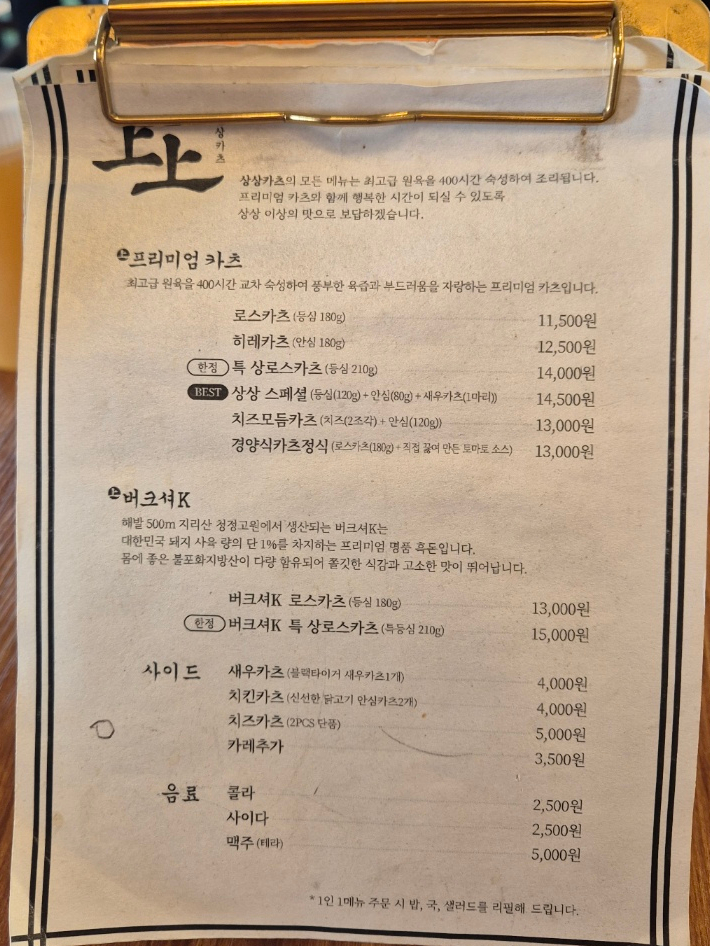 上上
상카츠
상상카츠의 모든 메뉴는 최고급 원육을 400시간 숙성하여 조리됩니다.
프리미엄 카츠와 함께 행복한 시간이 되실 수 있도록
상상 이상의 맛으로 보답하겠습니다.
上 프리미엄 카츠
최고급 원육을 400시간 교차 숙성하여 풍부한 육즙과 부드러움을 자랑하는 프리미엄 카츠입니다.
로스카츠 (등심 180g) 11,500원
히레카츠 (안심 180g) 12,500원
한정 특 상로스카츠 (등심 210g) 14,000원
BEST 상상 스페셜 (등심(120g) + 안심(80g) + 새우카츠(1마리)) 14,500원
치즈모듬카츠 (치즈(2조각) + 안심(120g)) 13,000원
경양식카츠정식 (로스카츠(180g) + 직접 끓여 만든 토마토 소스) 13,000원
上 버크셔K
해발 500m 지리산 청정고원에서 생산되는 버크셔K는
대한민국 돼지 사육 량의 단 1%를 차지하는 프리미엄 명품 흑돈입니다.
몸에 좋은 불포화지방산이 다량 함유되어 쫄깃한 식감과 고소한 맛이 뛰어납니다.
버크셔K 로스카츠 (등심 180g) 13,000원
한정 버크셔K 특 상로스카츠 (특등심 210g) 15,000원
사이드 새우카츠 (블랙타이거 새우카츠1개) 4,000원
치킨카츠 (신선한 닭고기 안심카츠2개) 4,000원
치즈카츠 (2PCS 단품) 5,000원
카레추가 3,500원
음료 콜라 2,500원
사이다 2,500원
맥주 (테라) 5,000원
* 1인 1메뉴 주문 시 밥, 국, 샐러드를 리필해 드립니다.